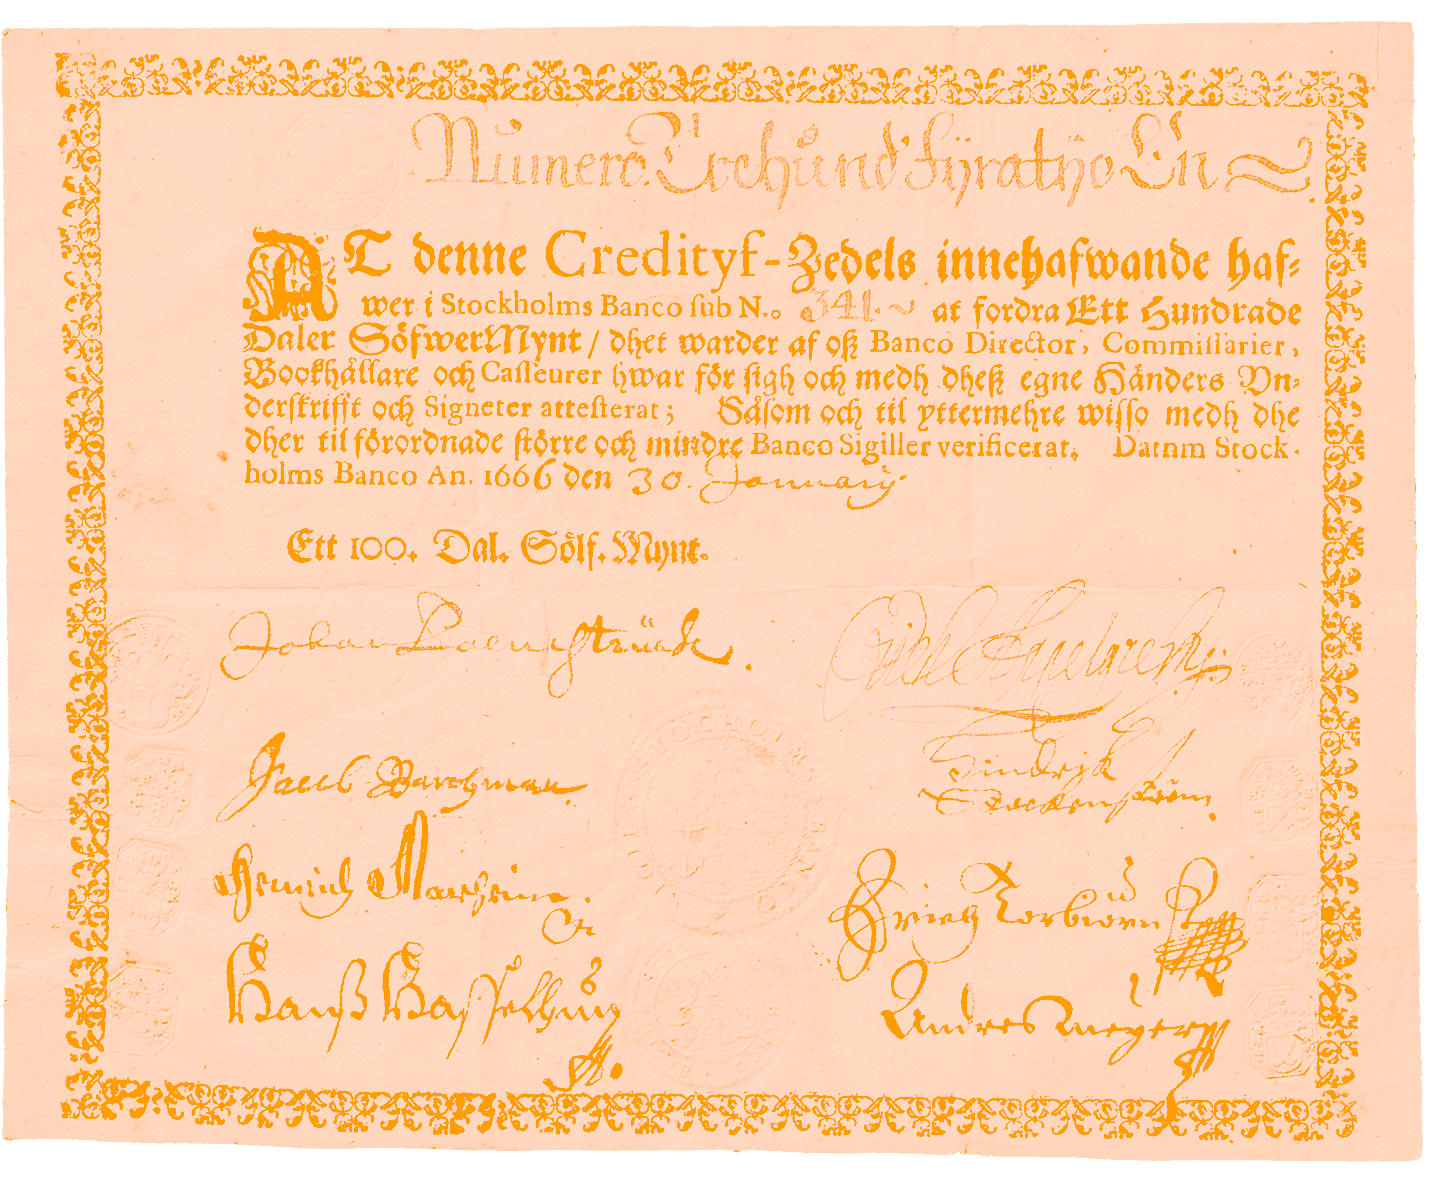 Numero. Trehund: fÿratÿo En
AT denne Credityf-Zedels innehafwande haf-
wer i Stockholms Banco sub N.o 341. at fordra Ett Hundrade
Daler SöfwerMynt / dhet warder af oß Banco Director, Commissarier,
Bookhållare och Casseurer hwar för sigh och medh dheß egne Händers Vn-
derskrifft och Signeter attesterat; Såsom och til yttermehre wisso medh dhe
dher til förordnade större och mindre Banco Sigiller verificerat. Datnm Stock-
holms Banco An. 1666 den 30. Januarij
Ett 100. Dal. Sölf. Mynt.
Johan
Jacob Barchman
Hindrijk
Hanß
Andres Meyer
STOCHOLMS BANCO